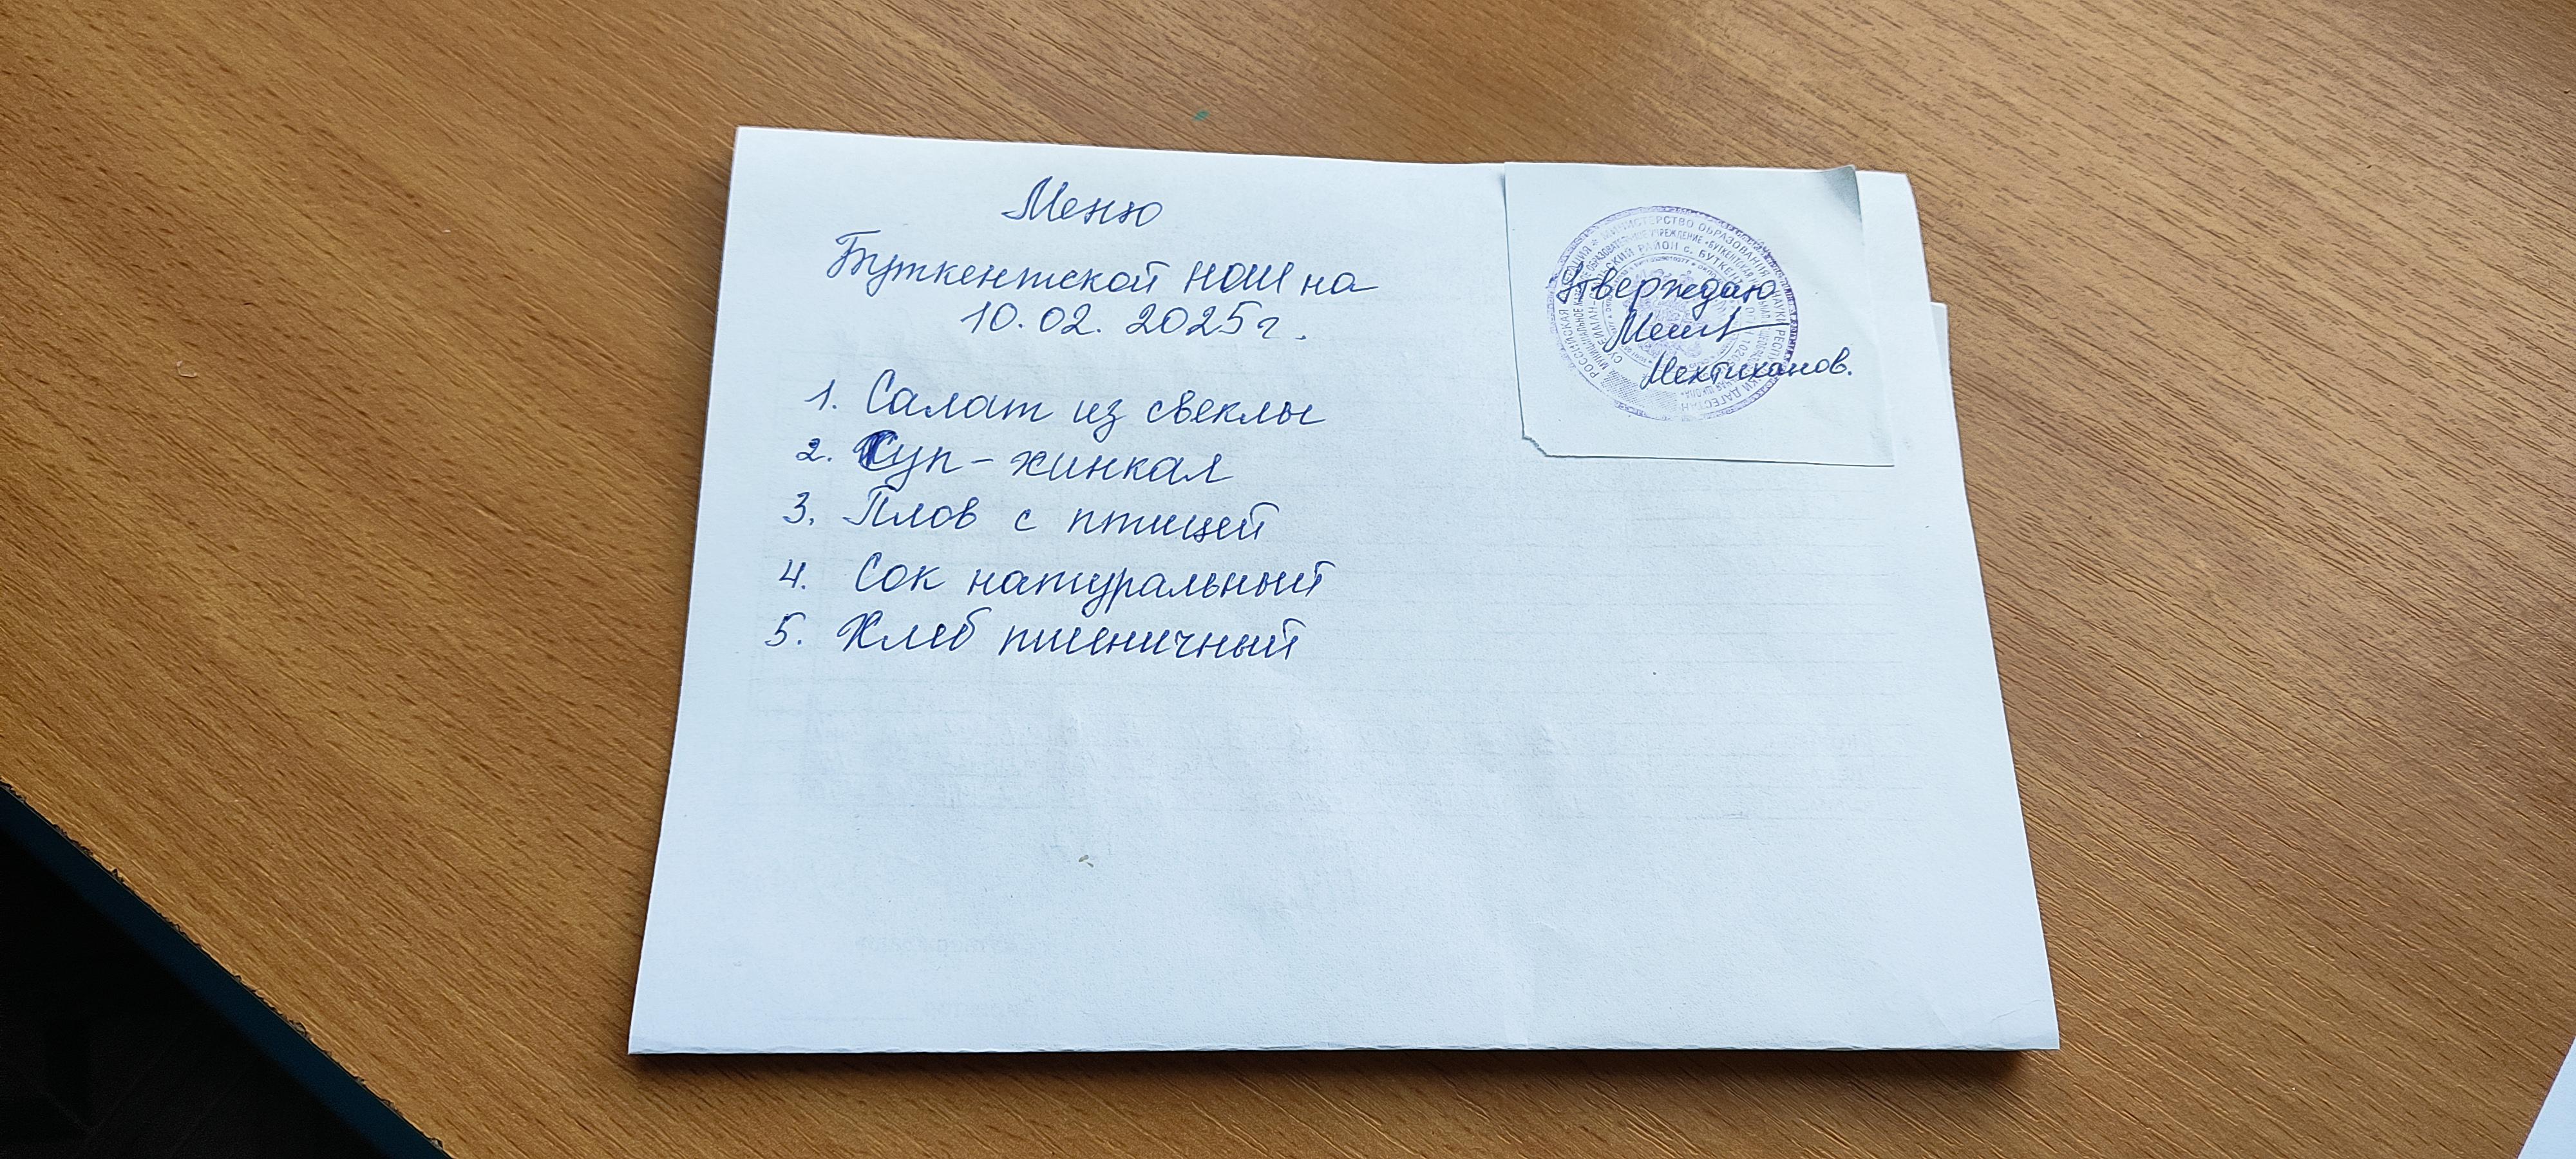 Меню
Буткентской НОШ на
10.02.2025г.
1. Салат из свеклы
2. Суп-хинкал
3. Плов с птицей
4. Сок натуральный
5. Хлеб пшеничный
Утверждаю
Мехтиханов.
МИНИСТЕРСТВО ОБРАЗОВАНИЯ И НАУКИ РЕСПУБЛИКИ ДАГЕСТАН
РОССИЙСКАЯ ФЕДЕРАЦИЯ
РАЙОН с. БУТКЕНТ